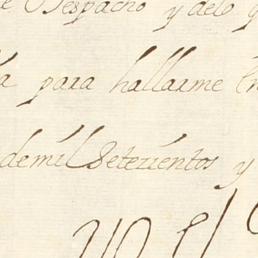 e Despacho y delo q
a para hallarme en
demil Setezientos y
yo el